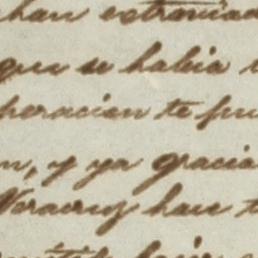 han extraviad
que se habia
peracion te pu
n, y ya gracia
Veracruz han t